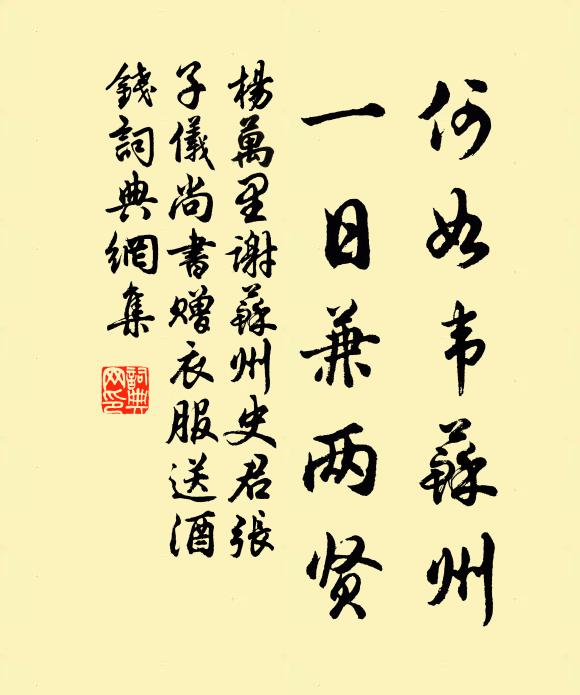 何如韦蘇州
一日兼两贤
楊萬里谢蘇州史君張
子儀尚書赠衣服送酒
錢詞典網集
詞典
网印